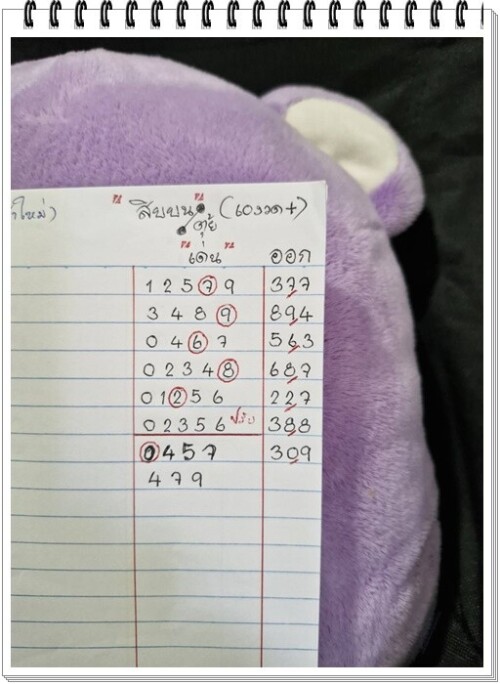 สิบบน (เ๐งวด+)
เด่น ออก
1 2 5 7 9 377
3 4 8 9 894
0 4 6 7 563
0 2 3 4 8 687
0 1 2 5 6 227
0 2 3 5 6 388
0 4 5 7 309
4 7 9